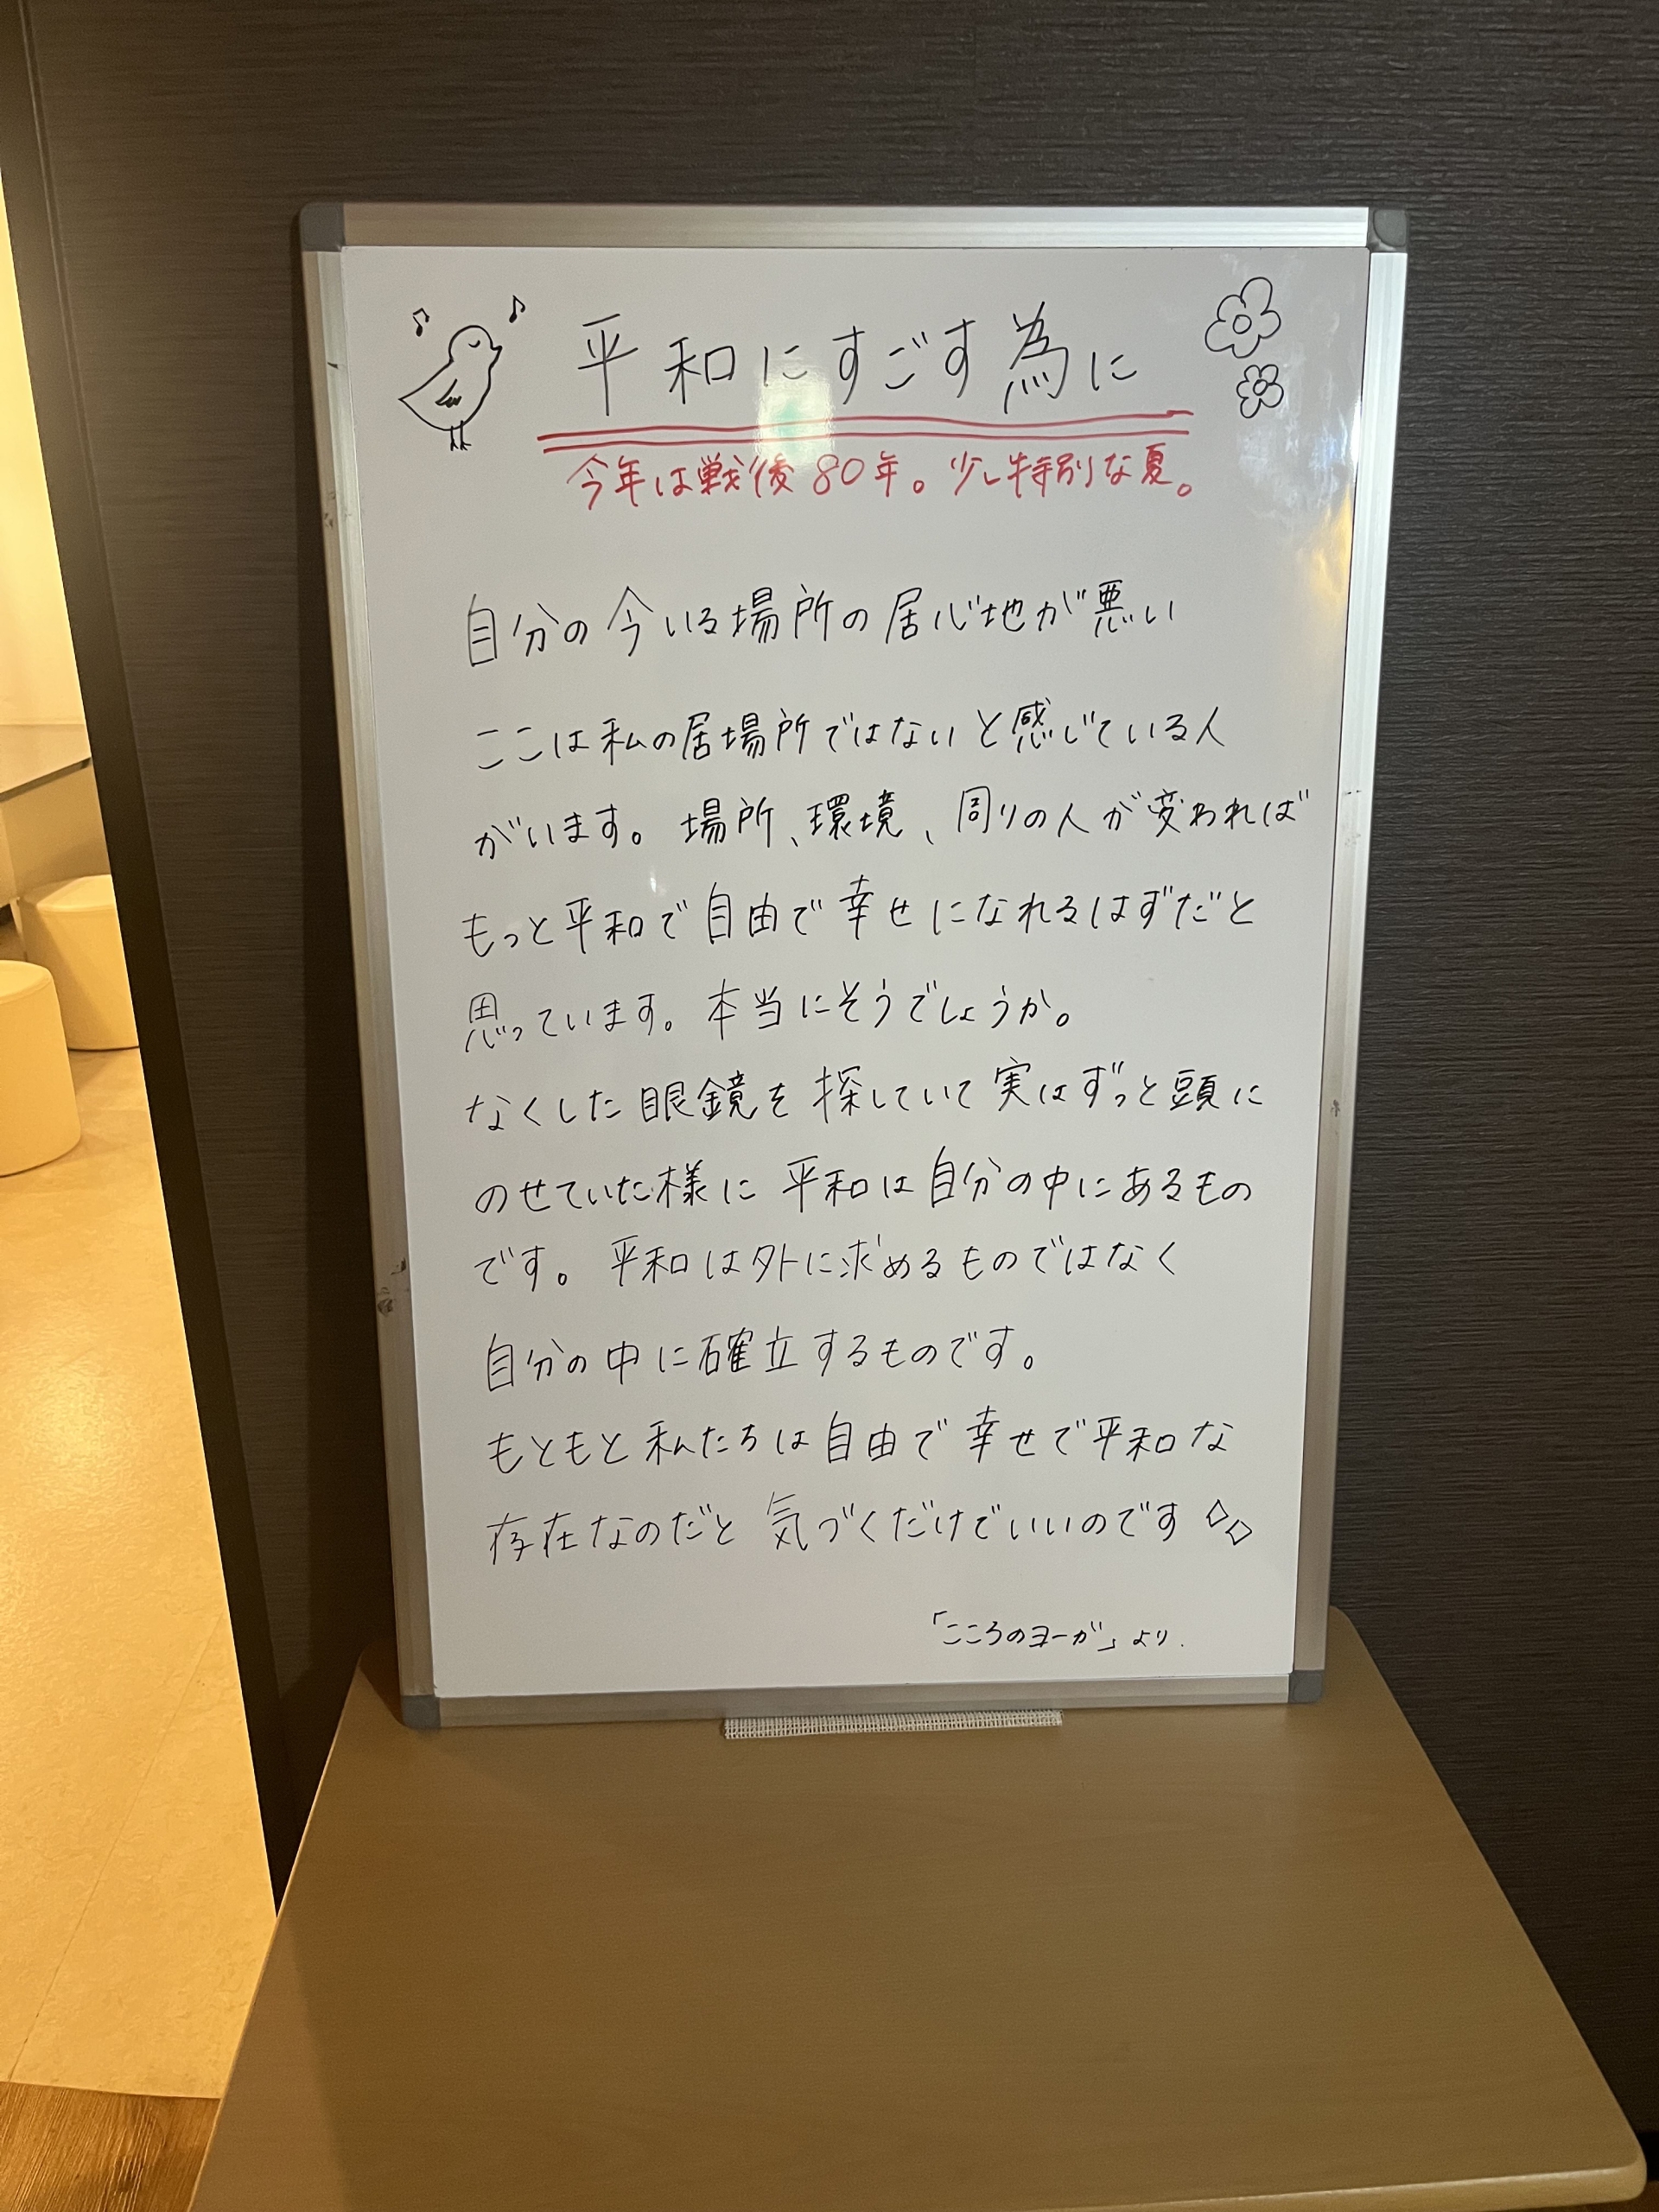 平和にすごす為に
今年は戦後80年。少し特別な夏。
自分の今いる場所の居心地が悪い
ここは私の居場所ではないと感じている人
がいます。場所、環境、周りの人が変われば
もっと平和で自由で幸せになれるはずだと
思っています。本当にそうでしょうか。
なくした眼鏡を探していて実はずっと頭に
のせていた様に平和は自分の中にあるもの
です。平和は外に求めるものではなく
自分の中に確立するものです。
もともと私たちは自由で幸せで平和な
存在なのだと気づくだけでいいのです
「こころのヨーガ」より.